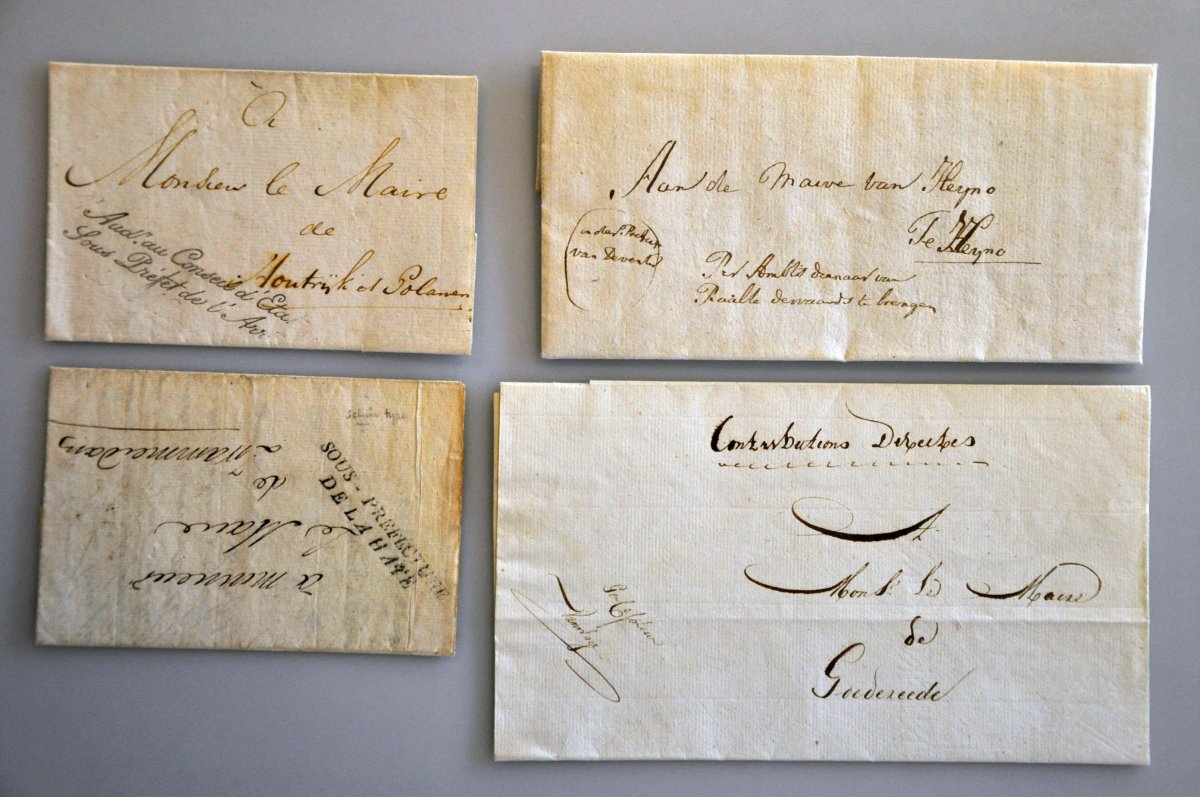 À
Monsieur le Maire
de
Houtrijk et Polanen
Aud.r au Conseil d'Eta
Sous Préfet de l'Arr
Aan de Maire van Heyno
Te Heyno
van Devent
Per Ambts dienaar van
Raalte derwaards te brengen
SOUS-PREFECTURE
DE LA HAYE
à monsieur
le Maire
de
Contributions Directes
A
Mons.r le Maire
de
Goedereede